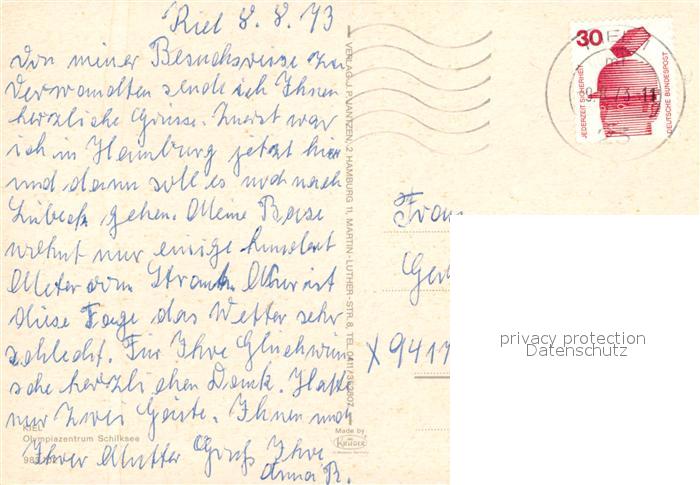 Kiel 8.8.73
Von meiner Besuchsreise zu
Verwandten sende ich Ihnen
herzliche Grüsse. Zuerst war
ich in Hamburg jetzt hier
und dann soll es noch nach
Lübeck gehen. Meine Base
wohnt nur einige hundert
Meter vom Strand. Aber ist
diese Tage das Wetter sehr
schlecht. Für Ihre Glückwün
sche herzlichen Dank. Hatte
nur zwei Gäste. Ihnen und
Ihrer Mutter Grüß Ihre
Anna R.
KIEL
Olympiazentrum Schilksee
983
VERLAG J. P. VANTZEN, 2 HAMBURG 11, MARTIN-LUTHER-STR. 8, TEL. 0411/362807
Made by
KRÜGER
30
JEDERZEIT SICHERHEIT
DEUTSCHE BUNDESPOST
Frau
Ger
X 9417
privacy protection
Datenschutz